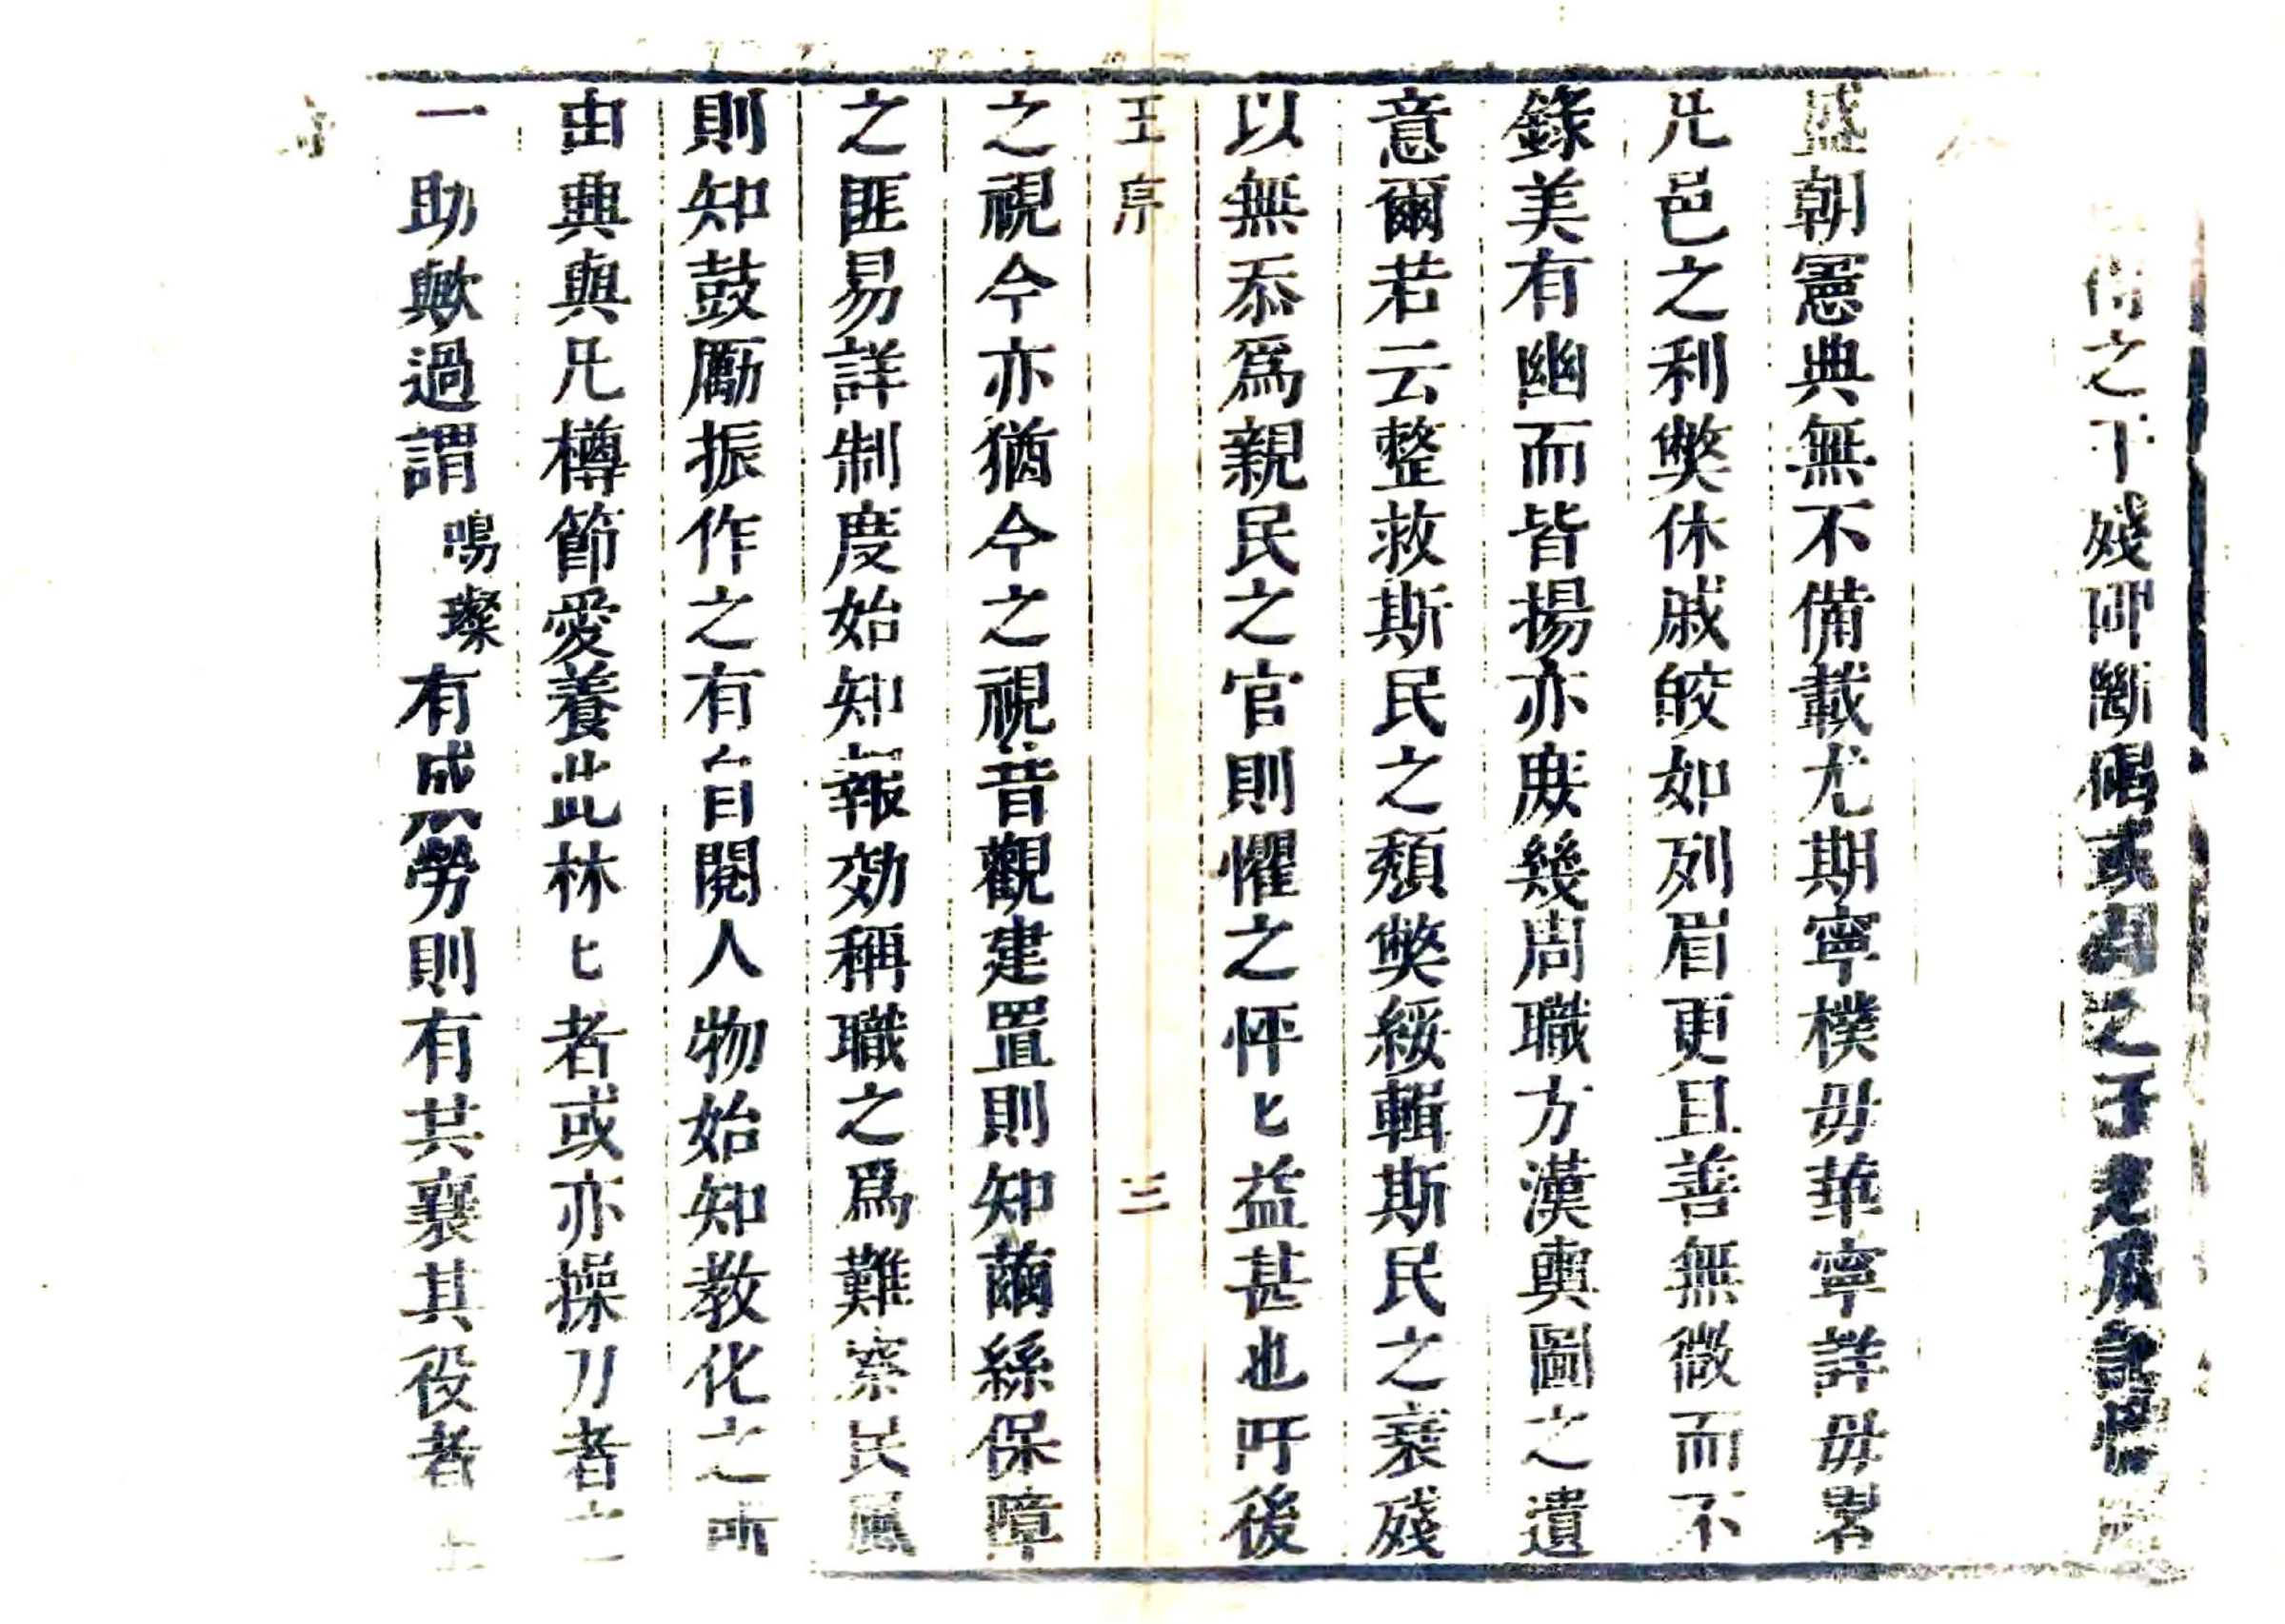 之于殘碑斷碣或詢之于老成記憶
盛朝憲典無不備載尤期寧樸毋華寧詳毋畧
凡邑之利弊休戚皎如列眉更且善無微而不
錄美有幽而皆揚亦庻幾周職方漢輿圖之遺
意爾若云整救斯民之頹弊綏輯斯民之衰殘
以無忝爲親民之官則懼之怦〻益甚也吁後
王序
三
之視今亦猶今之視昔觀建置則知繭絲保障
之匪易詳制度始知報効稱職之爲難察民風
則知鼓厲振作之有自閱人物始知教化之所
由典與凡樽節愛養此林〻者或亦操刀者之
一助歟過謂鳴璨有成勞則有其襄其役者